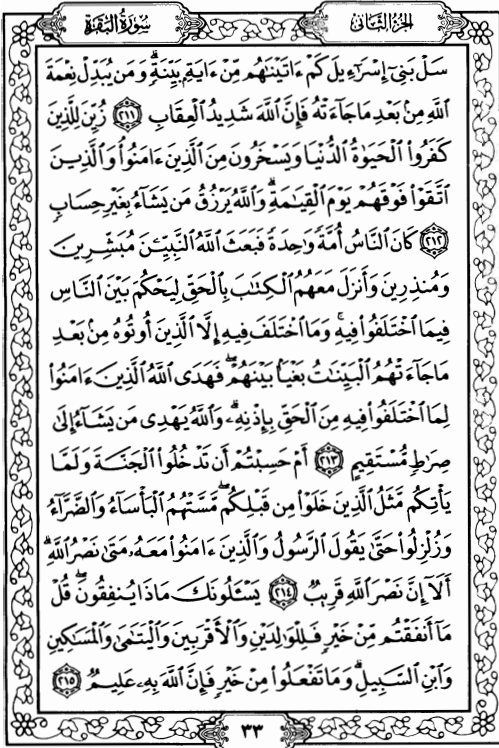 سُورَةُ البَقَرَةِ
الجُزْءُ الثَّانِي
سَلْ بَنِىٓ إِسْرَٰٓءِيلَ كَمْ ءَاتَيْنَٰهُم مِّنْ ءَايَةٍۭ بَيِّنَةٍۗ وَمَن يُبَدِّلْ نِعْمَةَ
ٱللَّهِ مِنۢ بَعْدِ مَا جَآءَتْهُ فَإِنَّ ٱللَّهَ شَدِيدُ ٱلْعِقَابِ ٢١١ زُيِّنَ لِلَّذِينَ
كَفَرُوا۟ ٱلْحَيَوٰةُ ٱلدُّنْيَا وَيَسْخَرُونَ مِنَ ٱلَّذِينَ ءَامَنُوا۟ۘ وَٱلَّذِينَ
ٱتَّقَوْا۟ فَوْقَهُمْ يَوْمَ ٱلْقِيَٰمَةِۗ وَٱللَّهُ يَرْزُقُ مَن يَشَآءُ بِغَيْرِ حِسَابٍ
٢١٢ كَانَ ٱلنَّاسُ أُمَّةً وَٰحِدَةً فَبَعَثَ ٱللَّهُ ٱلنَّبِيِّـۧنَ مُبَشِّرِينَ
وَمُنذِرِينَ وَأَنزَلَ مَعَهُمُ ٱلْكِتَٰبَ بِٱلْحَقِّ لِيَحْكُمَ بَيْنَ ٱلنَّاسِ
فِيمَا ٱخْتَلَفُوا۟ فِيهِۚ وَمَا ٱخْتَلَفَ فِيهِ إِلَّا ٱلَّذِينَ أُوتُوهُ مِنۢ بَعْدِ
مَا جَآءَتْهُمُ ٱلْبَيِّنَٰتُ بَغْيَۢا بَيْنَهُمْۖ فَهَدَى ٱللَّهُ ٱلَّذِينَ ءَامَنُوا۟
لِمَا ٱخْتَلَفُوا۟ فِيهِ مِنَ ٱلْحَقِّ بِإِذْنِهِۦۗ وَٱللَّهُ يَهْدِى مَن يَشَآءُ إِلَىٰ
صِرَٰطٍ مُّسْتَقِيمٍ ٢١٣ أَمْ حَسِبْتُمْ أَن تَدْخُلُوا۟ ٱلْجَنَّةَ وَلَمَّا
يَأْتِكُم مَّثَلُ ٱلَّذِينَ خَلَوْا۟ مِن قَبْلِكُمۖ مَّسَّتْهُمُ ٱلْبَأْسَآءُ وَٱلضَّرَّآءُ
وَزُلْزِلُوا۟ حَتَّىٰ يَقُولَ ٱلرَّسُولُ وَٱلَّذِينَ ءَامَنُوا۟ مَعَهُۥ مَتَىٰ نَصْرُ ٱللَّهِۗ
أَلَآ إِنَّ نَصْرَ ٱللَّهِ قَرِيبٌ ٢١٤ يَسْـَٔلُونَكَ مَاذَا يُنفِقُونَۖ قُلْ
مَآ أَنفَقْتُم مِّنْ خَيْرٍ فَلِلْوَٰلِدَيْنِ وَٱلْأَقْرَبِينَ وَٱلْيَتَٰمَىٰ وَٱلْمَسَٰكِينِ
وَٱبْنِ ٱلسَّبِيلِۗ وَمَا تَفْعَلُوا۟ مِنْ خَيْرٍ فَإِنَّ ٱللَّهَ بِهِۦ عَلِيمٌ ٢١٥
٣٣